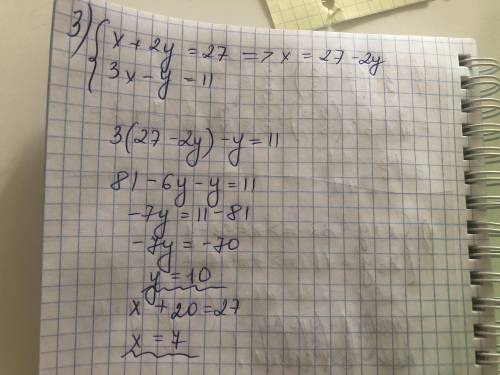 3) x + 2y = 27 => x = 27 - 2y
3x - y = 11
3(27 - 2y) - y = 11
81 - 6y - y = 11
-7y = 11 - 81
-7y = -70
y = 10
x + 20 = 27
x = 7